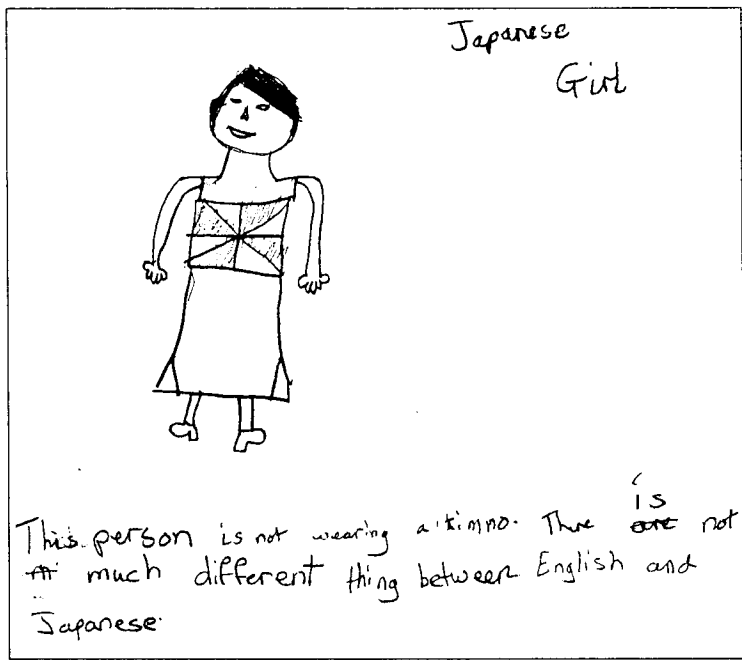 Japanese
Girl
This person is not wearing a kimno. There is not
much different thing between English and
Japanese.